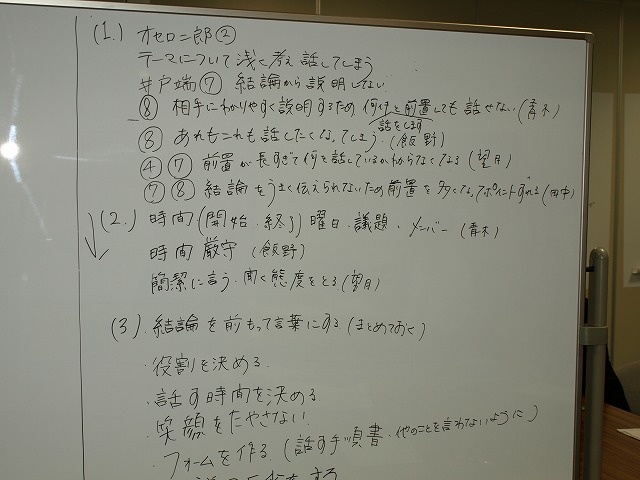 (1.) オセロ二郎②
テーマについて浅く考え話してしまう
井戸端⑦ 結論から説明しない
⑧ 相手にわかりやすく説明するため、何分と前置しても話せない(青木)
話をします
③ あれもこれも話したくなってしまう。(飯野)
④ ⑦ 前置が長すぎて何を話しているかわからなくなる(望月)
⑦ ⑧ 結論をうまく伝えられないため前置を多くなってポイントずれる(田中)
(2.) 時間(開始、終了)曜日、議題、メンバー(青木)
時間厳守(飯野)
簡潔に言う、聞く態度をとる(望月)
(3). 結論を前もって言葉にする(まとめておく)
・役割を決める
・話す時間を決める
・笑顔をたやさない
・フォームを作る(話す手順書、他のことを言わないように)